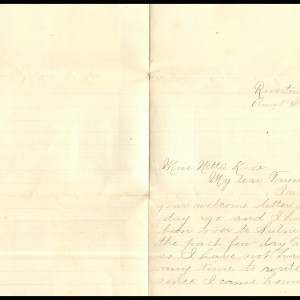 Riverton
Aug
Miss Nettie Knox
My Dear Frien
your welcome letter
day ago and I ha
been over to
the past few day
so I have not ha
any time to write
since I came home